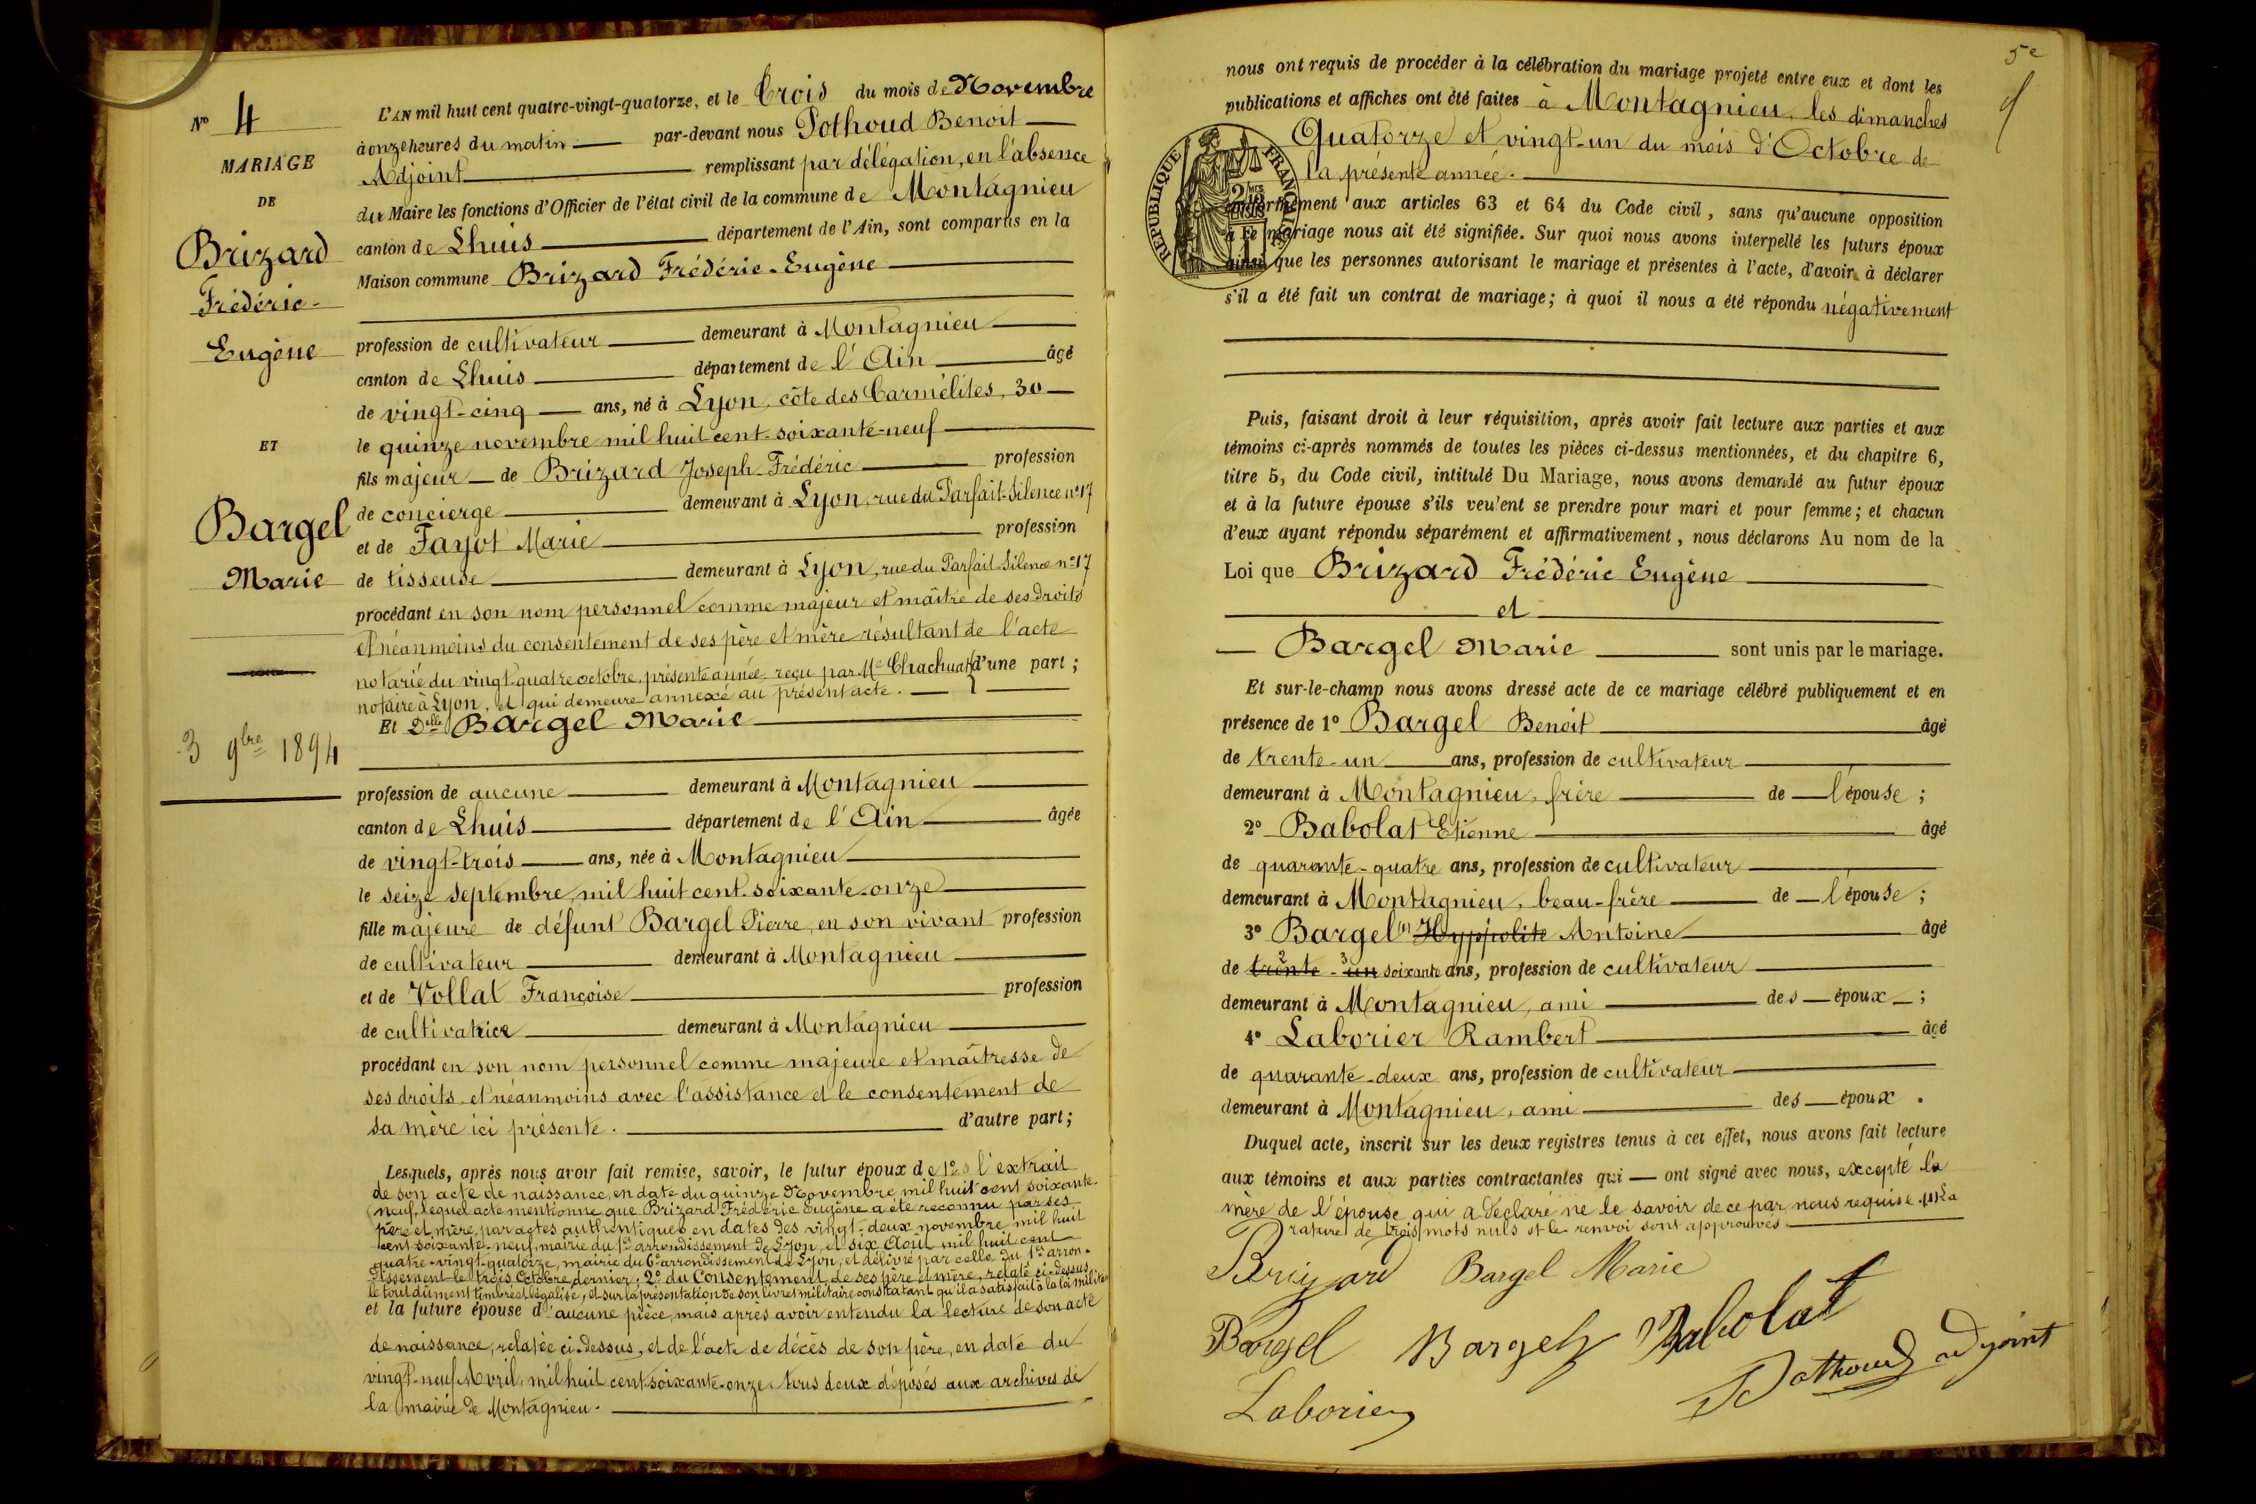 N° 4
MARIAGE
DE
Brizard
Frédéric-
Eugène
ET
Bargel
Marie
3 9bre 1894
L'AN mil huit cent quatre-vingt-quatorze, et le Trois du mois de Novembre
à onze heures du matin par-devant nous Pothoud Benoit
Adjoint remplissant par délégation, en l'absence
du Maire les fonctions d'Officier de l'état civil de la commune de Montagnieu
canton de Lhuis département de l'Ain, sont comparus en la
Maison commune Brizard Frédéric-Eugène
profession de cultivateur demeurant à Montagnieu
canton de Lhuis département de l'Ain âgé
de vingt-cinq ans, né à Lyon, côte des Carmélites, 30
le quinze novembre mil huit cent soixante-neuf
fils majeur de Brizard Joseph-Frédéric profession
de concierge demeurant à Lyon, rue du Parfait-Silence n°17
et de Fayot Marie profession
de tisseuse demeurant à Lyon, rue du Parfait Silence n°17
procédant en son nom personnel comme majeur et maître de ses droits
et néanmoins du consentement de ses père et mère résultant de l'acte
notarié du vingt-quatre octobre, présente année, reçu par Me d'une part ;
notaire à Lyon, et qui demeure annexé au présent acte.
Et Delle Bargel Marie
profession de aucune demeurant à Montagnieu
canton de Lhuis département de l'Ain âgée
de vingt-trois ans, née à Montagnieu
le seize septembre, mil huit cent soixante-onze
fille majeure de défunt Bargel Pierre, en son vivant profession
de cultivateur demeurant à Montagnieu
et de Vollat Françoise profession
de cultivatrice demeurant à Montagnieu
procédant en son nom personnel comme majeure et maîtresse de
ses droits et néanmoins avec l'assistance et le consentement de
sa mère ici présente. d'autre part ;
Lesquels, après nous avoir fait remise, savoir, le futur époux de 1° l'extrait
de son acte de naissance, en date du quinze Novembre mil huit cent soixante-
neuf, lequel acte mentionne que Brizard Frédéric Eugène a été reconnu par ses
père et mère, par actes authentiques en dates des vingt-deux novembre mil huit
cent soixante-neuf, mairie du 1er arrondissement de Lyon, et six Août mil huit cent
quatre-vingt-quatorze, mairie du 6e arrondissement de Lyon, et délivré par celle du 1er arron-
dissement le trois Octobre dernier ; 2° du Consentement de ses père et mère, relaté ci-dessus,
le tout dûment timbré et légalisé, et sur la présentation de son livret militaire constatant qu'il a satisfait à la loi militre
et la future épouse d'aucune pièce, mais après avoir entendu la lecture de son acte
de naissance, relatée ci-dessus, et de l'acte de décès de son père, en date du
vingt-neuf Avril, mil huit cent soixante-onze, tous deux déposés aux archives de
la mairie de Montagnieu.
5e
nous ont requis de procéder à la célébration du mariage projeté entre eux et dont les
publications et affiches ont été faites à Montagnieu, les dimanches
Quatorze et vingt-un du mois d'Octobre de
la présente année.
RÉPUBLIQUE FRANÇAISE
conformément aux articles 63 et 64 du Code civil, sans qu'aucune opposition
à ce mariage nous ait été signifiée. Sur quoi nous avons interpellé les futurs époux
ainsi que les personnes autorisant le mariage et présentes à l'acte, d'avoir à déclarer
s'il a été fait un contrat de mariage ; à quoi il nous a été répondu négativement
Puis, faisant droit à leur réquisition, après avoir fait lecture aux parties et aux
témoins ci-après nommés de toutes les pièces ci-dessus mentionnées, et du chapitre 6,
titre 5, du Code civil, intitulé Du Mariage, nous avons demandé au futur époux
et à la future épouse s'ils veulent se prendre pour mari et pour femme ; et chacun
d'eux ayant répondu séparément et affirmativement, nous déclarons Au nom de la
Loi que Brizard Frédéric Eugène
et
Bargel Marie sont unis par le mariage.
Et sur-le-champ nous avons dressé acte de ce mariage célébré publiquement et en
présence de 1° Bargel Benoit âgé
de trente-un ans, profession de cultivateur
demeurant à Montagnieu, frère de l'épouse ;
2° Babolat Etienne âgé
de quarante-quatre ans, profession de cultivateur
demeurant à Montagnieu, beau-frère de l'épouse ;
3° Bargel (1) Hyppolite Antoine âgé
de trente 2 - un 3 soixante ans, profession de cultivateur
demeurant à Montagnieu, ami des époux ;
4° Laborier Rambert âgé
de quarante-deux ans, profession de cultivateur
demeurant à Montagnieu, ami des époux.
Duquel acte, inscrit sur les deux registres tenus à cet effet, nous avons fait lecture
aux témoins et aux parties contractantes qui ont signé avec nous, excepté la
mère de l'épouse qui a déclaré ne le savoir de ce par nous requise. (1) La
rature de trois mots nuls et le renvoi sont approuvés
Brizard Bargel Marie
Bargel Bargel Babolat
Pothoud adjoint
Laborier